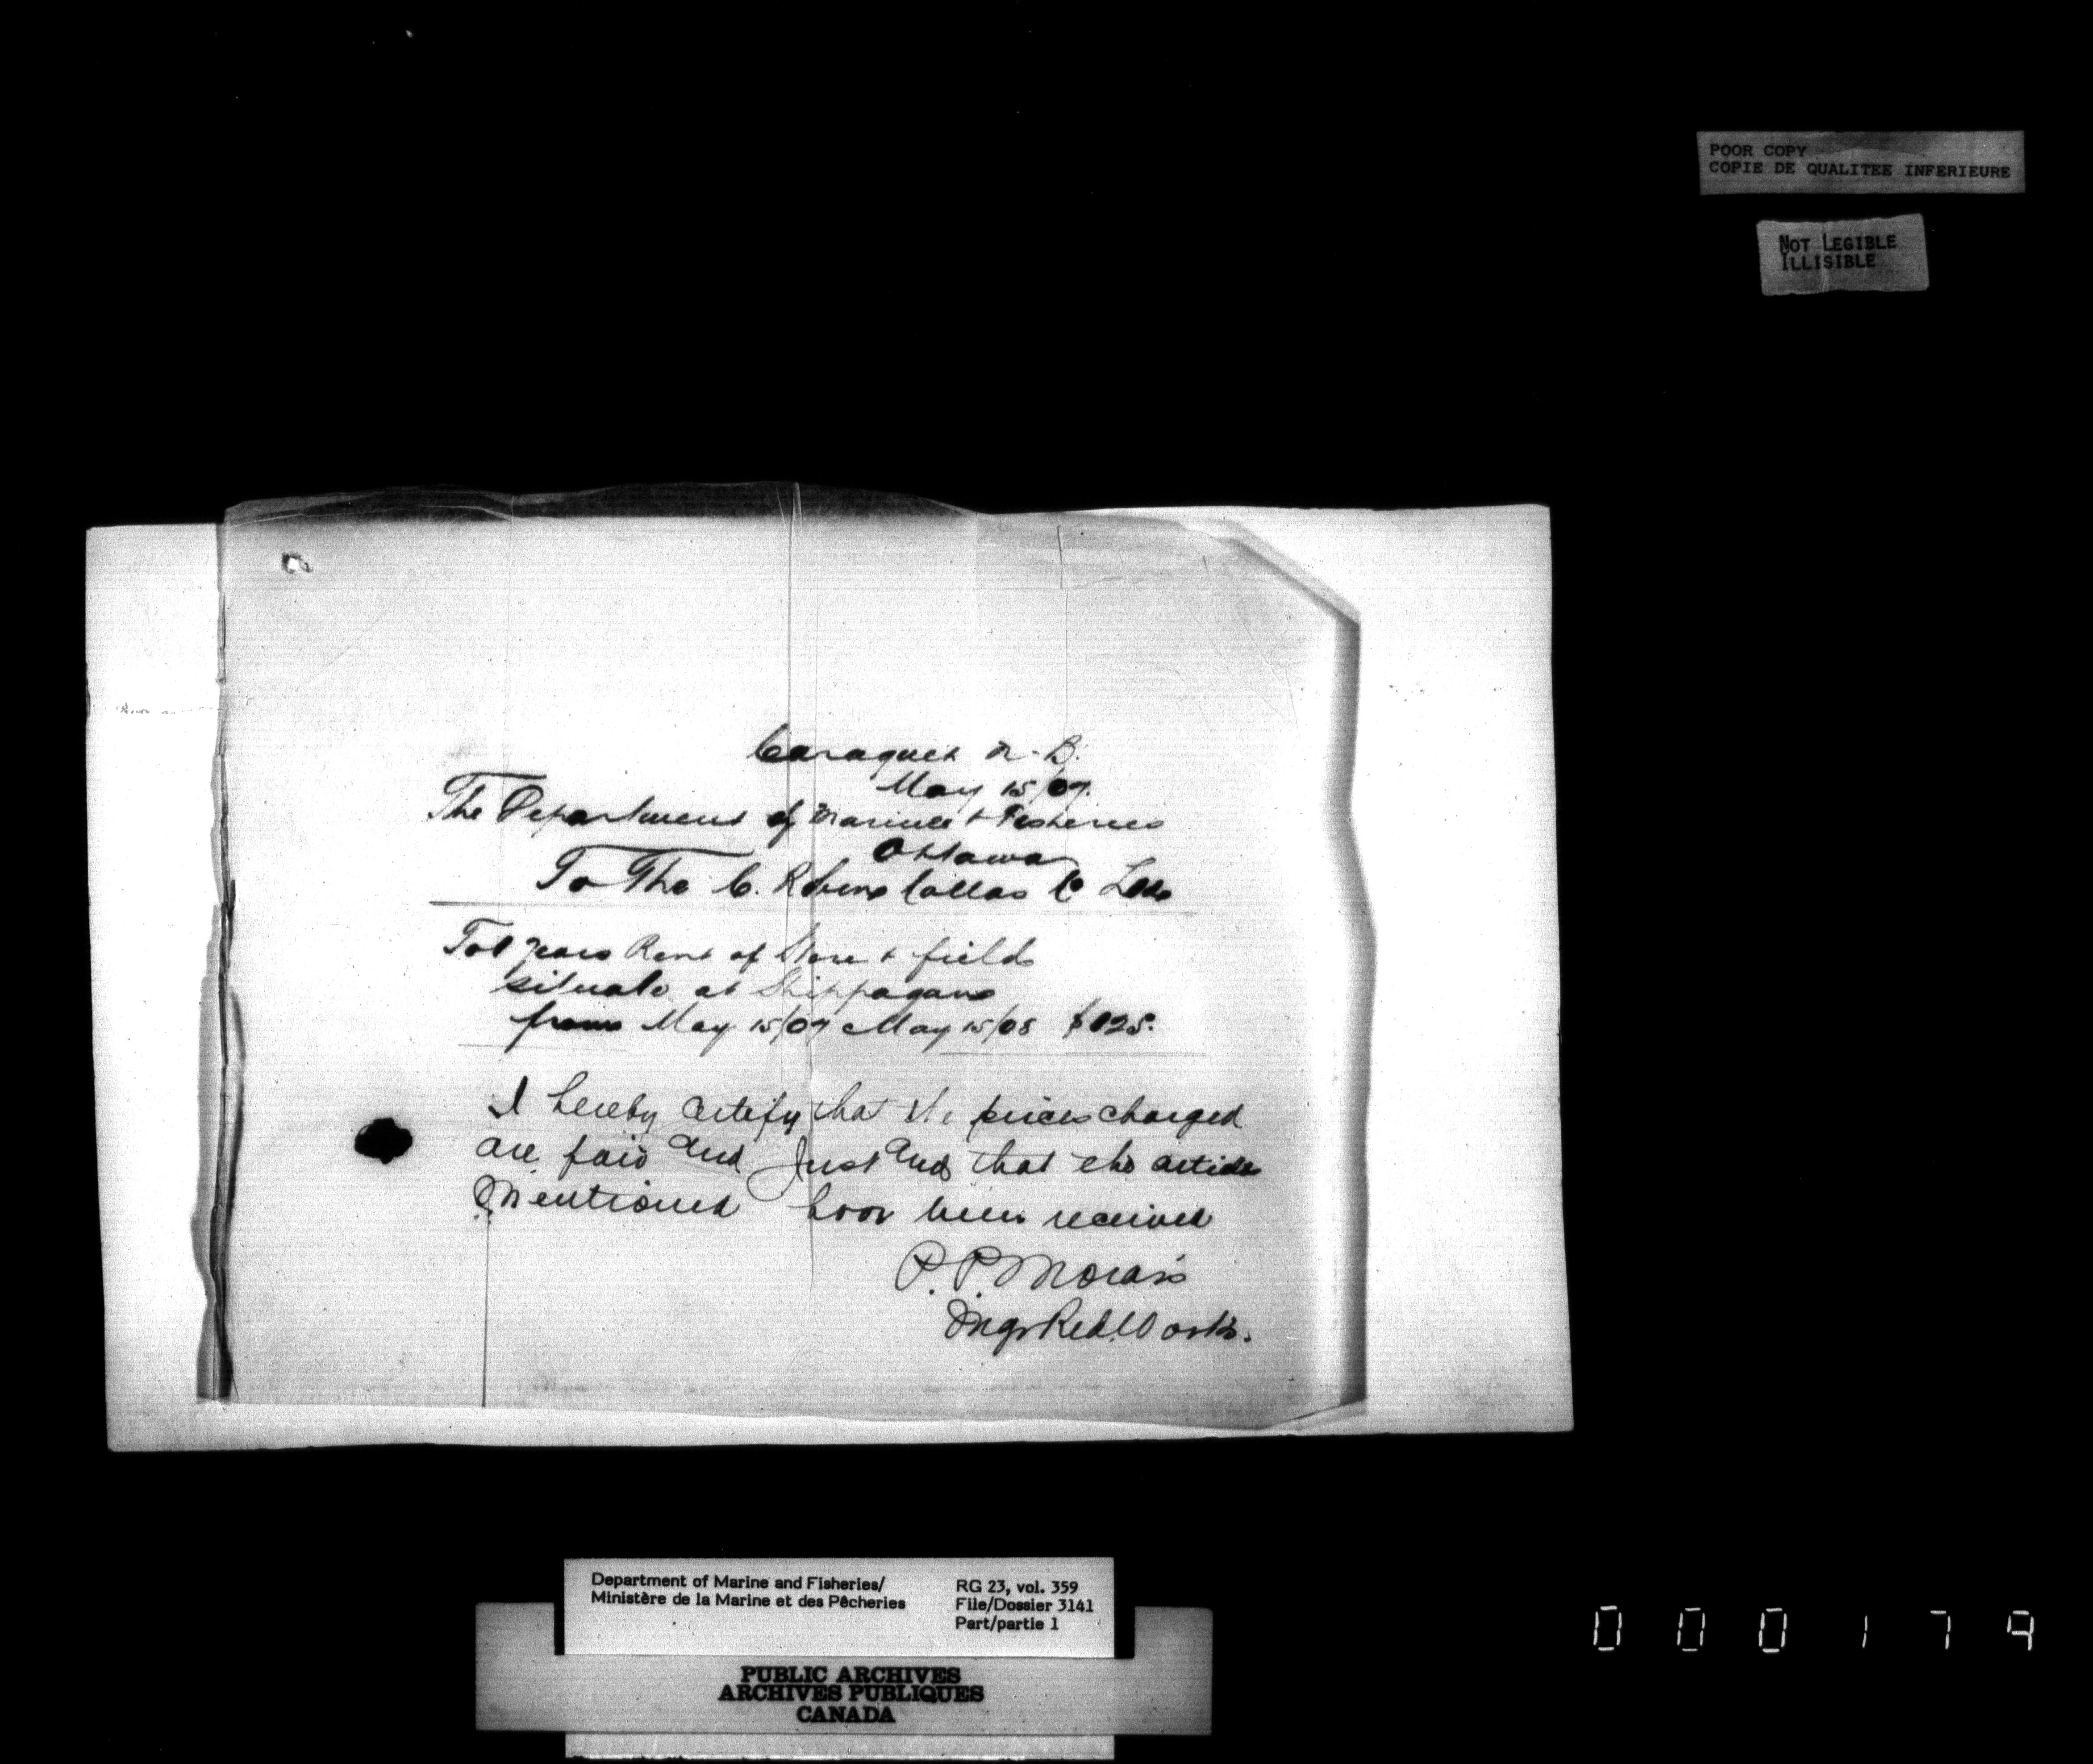 POOR COPY
COPIE DE QUALITEE INFERIEURE
NOT LEGIBLE
ILLISIBLE
Caraquet N.B.
May 15/07.
The Department of Marine & Fisheries
Ottawa
To The C. Robin Collas Co Ltd
To 1 years Rent of Store & field
situate at Shippagan
from May 15/07 May 15/08 $125.
I hereby certify that the prices charged
are fair and Just and that the articles
Mentioned have been received
P. P. Morais
Mgr Red. Works.
Department of Marine and Fisheries/
Ministère de la Marine et des Pêcheries
RG 23, vol. 359
File/Dossier 3141
Part/partie 1
PUBLIC ARCHIVES
ARCHIVES PUBLIQUES
CANADA
000179